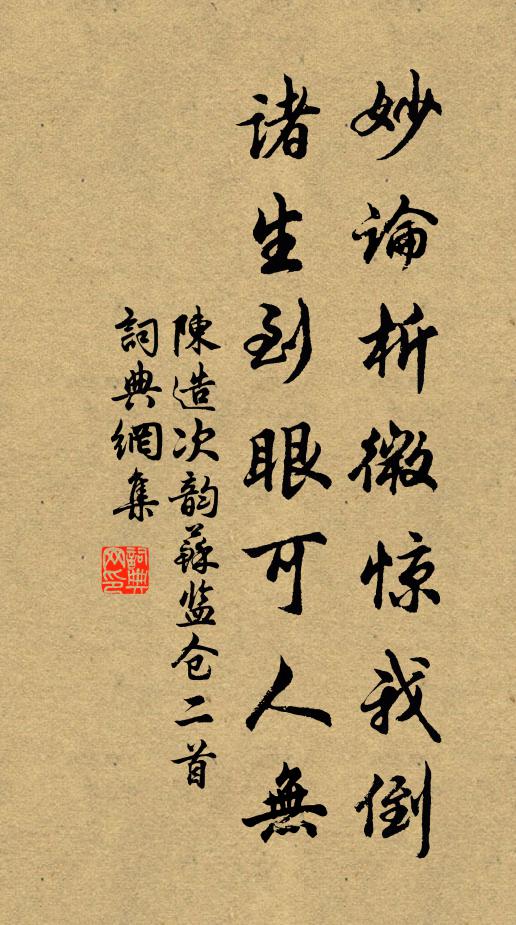 妙论析微惊我倒
诸生到眼可人無
陳造次韵蘇监仓二首
詞典網集
詞典網印